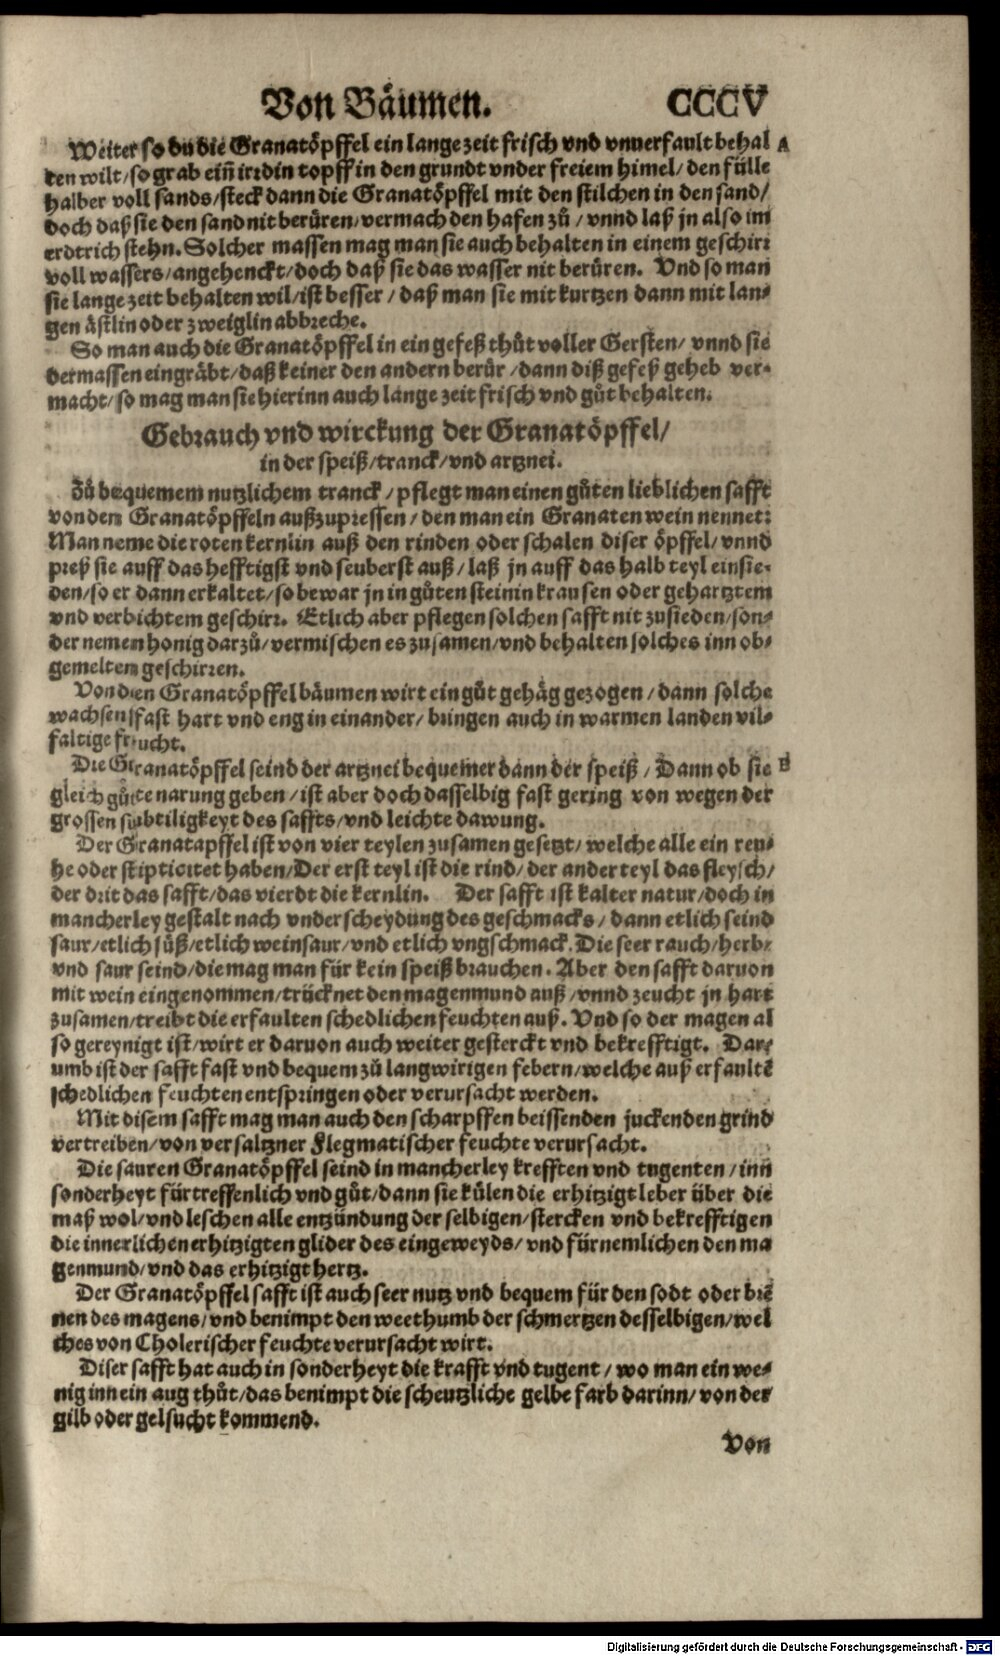 Von Bäumen. CCCV
Weiter so du die Granatöpffel ein lange zeit frisch vnd vnuerfault behal A
ten wilt/so grab eiñ irrdin topff in den grundt vnder freiem himel/den fülle
halber voll sands/steck dann die Granatöpffel mit den stilchen in den sand/
doch daß sie den sand nit berüren/vermach den hafen zů/vnnd laß jn also im
erdtrich stehn. Solcher massen mag man sie auch behalten in einem geschirr
voll wassers/angehenckt/doch daß sie das wasser nit berüren. Vnd so man
sie lange zeit behalten wil/ist besser/daß man sie mit kurtzen dann mit lan-
gen ästlin oder zweiglin abbreche.
So man auch die Granatöpffel in ein gefeß thůt voller Gersten/vnnd sie
dermassen eingräbt/daß keiner den andern berür/dann diß gefeß geheb ver-
macht/so mag man sie hierinn auch lange zeit frisch vnd gůt behalten.
Gebrauch vnd wirckung der Granatöpffel/
in der speiß/tranck/vnd artznei.
Zů bequemem nutzlichem tranck/pflegt man einen gůten lieblichen safft
von den Granatöpffeln außzupressen/den man ein Granaten wein nennet:
Man neme die roten kernlin auß den rinden oder schalen diser öpffel/vnnd
preß sie auff das hefftigst vnd seuberst auß/laß jn auff das halb teyl einsie-
den/so er dann erkaltet/so bewar jn in gůten steinin krausen oder gehartztem
vnd verbichtem geschirr. Etlich aber pflegen solchen safft nit zusieden/son-
der nemen honig darzů/vermischen es zusamen/vnd behalten solches inn ob-
gemeltem geschirren.
Von den Granatöpffelbäumen wirt ein gůt gehäg gezogen/dann solche
wachsen fast hart vnd eng in einander/bringen auch in warmen landen vil-
faltige frucht.
Die Granatöpffel seind der artznei bequemer dann der speiß/Dann ob sie B
gleich gůte narung geben/ist aber doch dasselbig fast gering von wegen der
grossen subtiligkeyt des saffts/vnd leichte dawung.
Der Granatapffel ist von vier teylen zusamen gesetzt/welche alle ein reu-
he oder stipticitet haben/Der erst teyl ist die rind/der ander teyl das fleysch/
der drit das safft/das vierdt die kernlin. Der safft ist kalter natur/doch in
mancherley gestalt nach vnderscheydung des geschmacks/dann etlich seind
saur/etlich süß/etlich weinsaur/vnd etlich vngschmack. Die seer rauch/herb-
vnd saur seind/die mag man für kein speiß brauchen. Aber den safft daruon
mit wein eingenommen/trücknet den magenmund auß/vnnd zeucht jn hart
zusamen/treibt die erfaulten schedlichen feuchten auß. Vnd so der magen al
so gereynigt ist/wirt er daruon auch weiter gesterckt vnd bekrefftigt. Dar-
umb ist der safft fast vnd bequem zů langwirigen febern/welche auß erfaultẽ
schedlichen feuchten entspringen oder verursacht werden.
Mit disem safft mag man auch den scharpffen beissenden juckenden grind
vertreiben/von versaltzner Flegmatischer feuchte verursacht.
Die sauren Granatöpffel seind in mancherley krefften vnd tugenten/inn
sonderheyt fürtreffenlich vnd gůt/dann sie külen die erhitzigt leber über die
maß wol/vnd leschen alle entzündung der selbigen/stercken vnd bekrefftigen
die innerlichen erhitzigten glider des eingeweyds/vnd fürnemlichen den ma
genmund/vnd das erhitzigt hertz.
Der Granatöpffel safft ist auch seer nutz vnd bequem für den sodt oder briẽ
nen des magens/vnd benimpt den weethumb der schmertzen desselbigen/wel
ches von Cholerischer feuchte verursacht wirt.
Diser safft hat auch in sonderheyt die krafft vnd tugent/wo man ein we-
nig inn ein aug thůt/das benimpt die scheutzliche gelbe farb darinn/von der
gilb oder gelsucht kommend.
Von
Digitalisierung gefördert durch die Deutsche Forschungsgemeinschaft - DFG